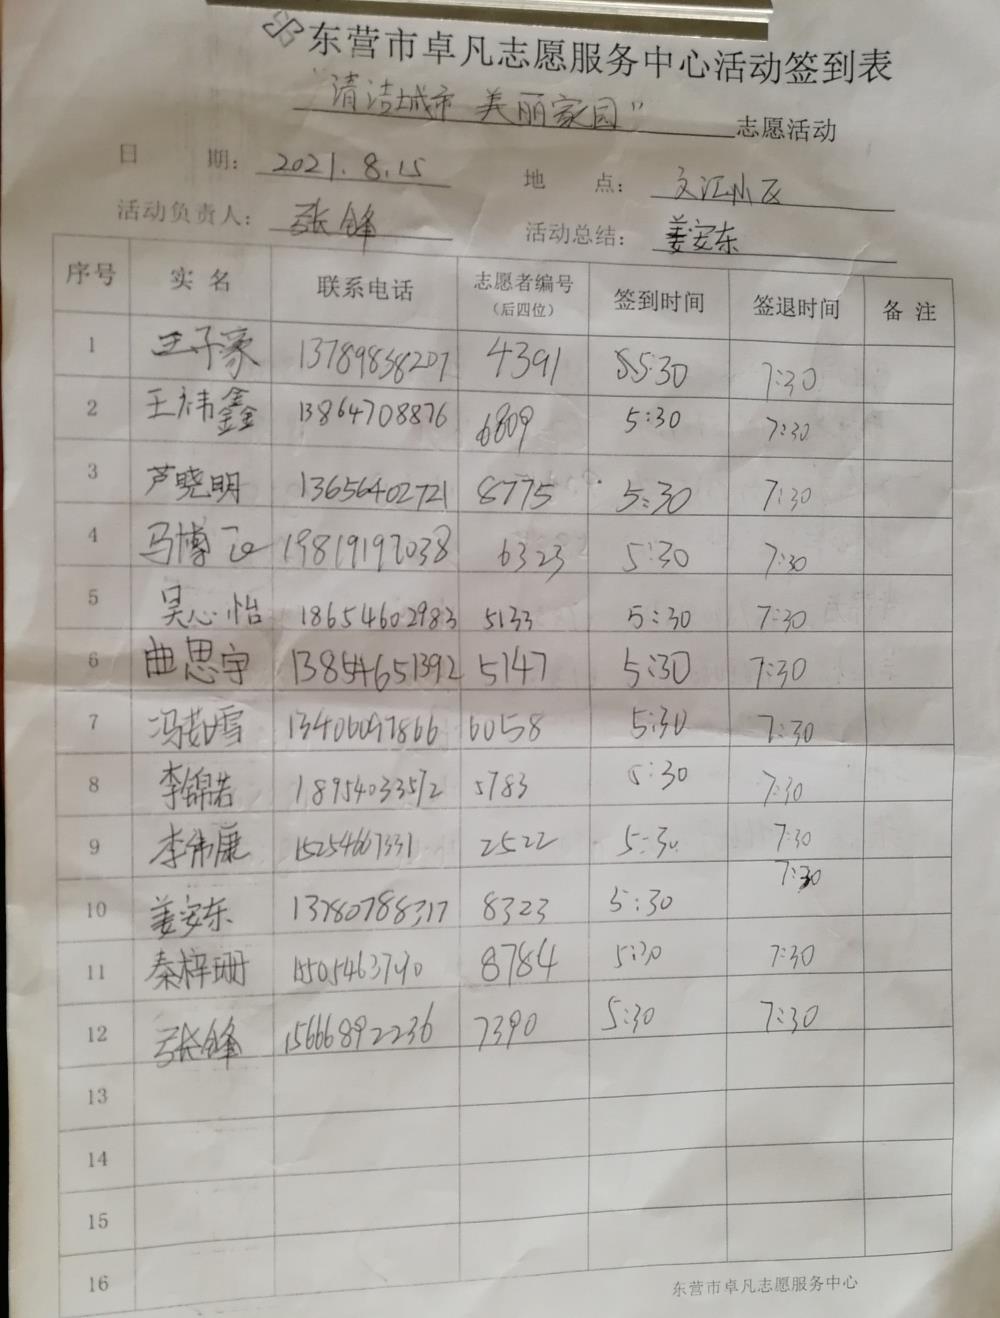 东营市卓凡志愿服务中心活动签到表
"清洁城市 美丽家园" 志愿活动
日 期： 2021.8.15 地 点： 文汇小区
活动负责人： 张锋 活动总结： 姜安东
序号 实名 联系电话 志愿者编号（后四位） 签到时间 签退时间 备注
1 王子豪 13789838207 4391 5:30 7:30
2 王祎鑫 13864708876 6809 5:30 7:30
3 芦晓明 13656402721 8775 5:30 7:30
4 马博 19819197038 6323 5:30 7:30
5 吴心怡 18654602983 5133 5:30 7:30
6 曲思宇 13854651392 5147 5:30 7:30
7 冯茹雪 13406097866 6058 5:30 7:30
8 李锦若 18954033572 5783 5:30 7:30
9 李伟康 15254667331 2522 5:30 7:30
10 姜安东 13780788317 8323 5:30 7:30
11 秦梓珊 8784 5:30 7:30
12 张锋 15666892236 7390 5:30 7:30
13
14
15
16
东营市卓凡志愿服务中心